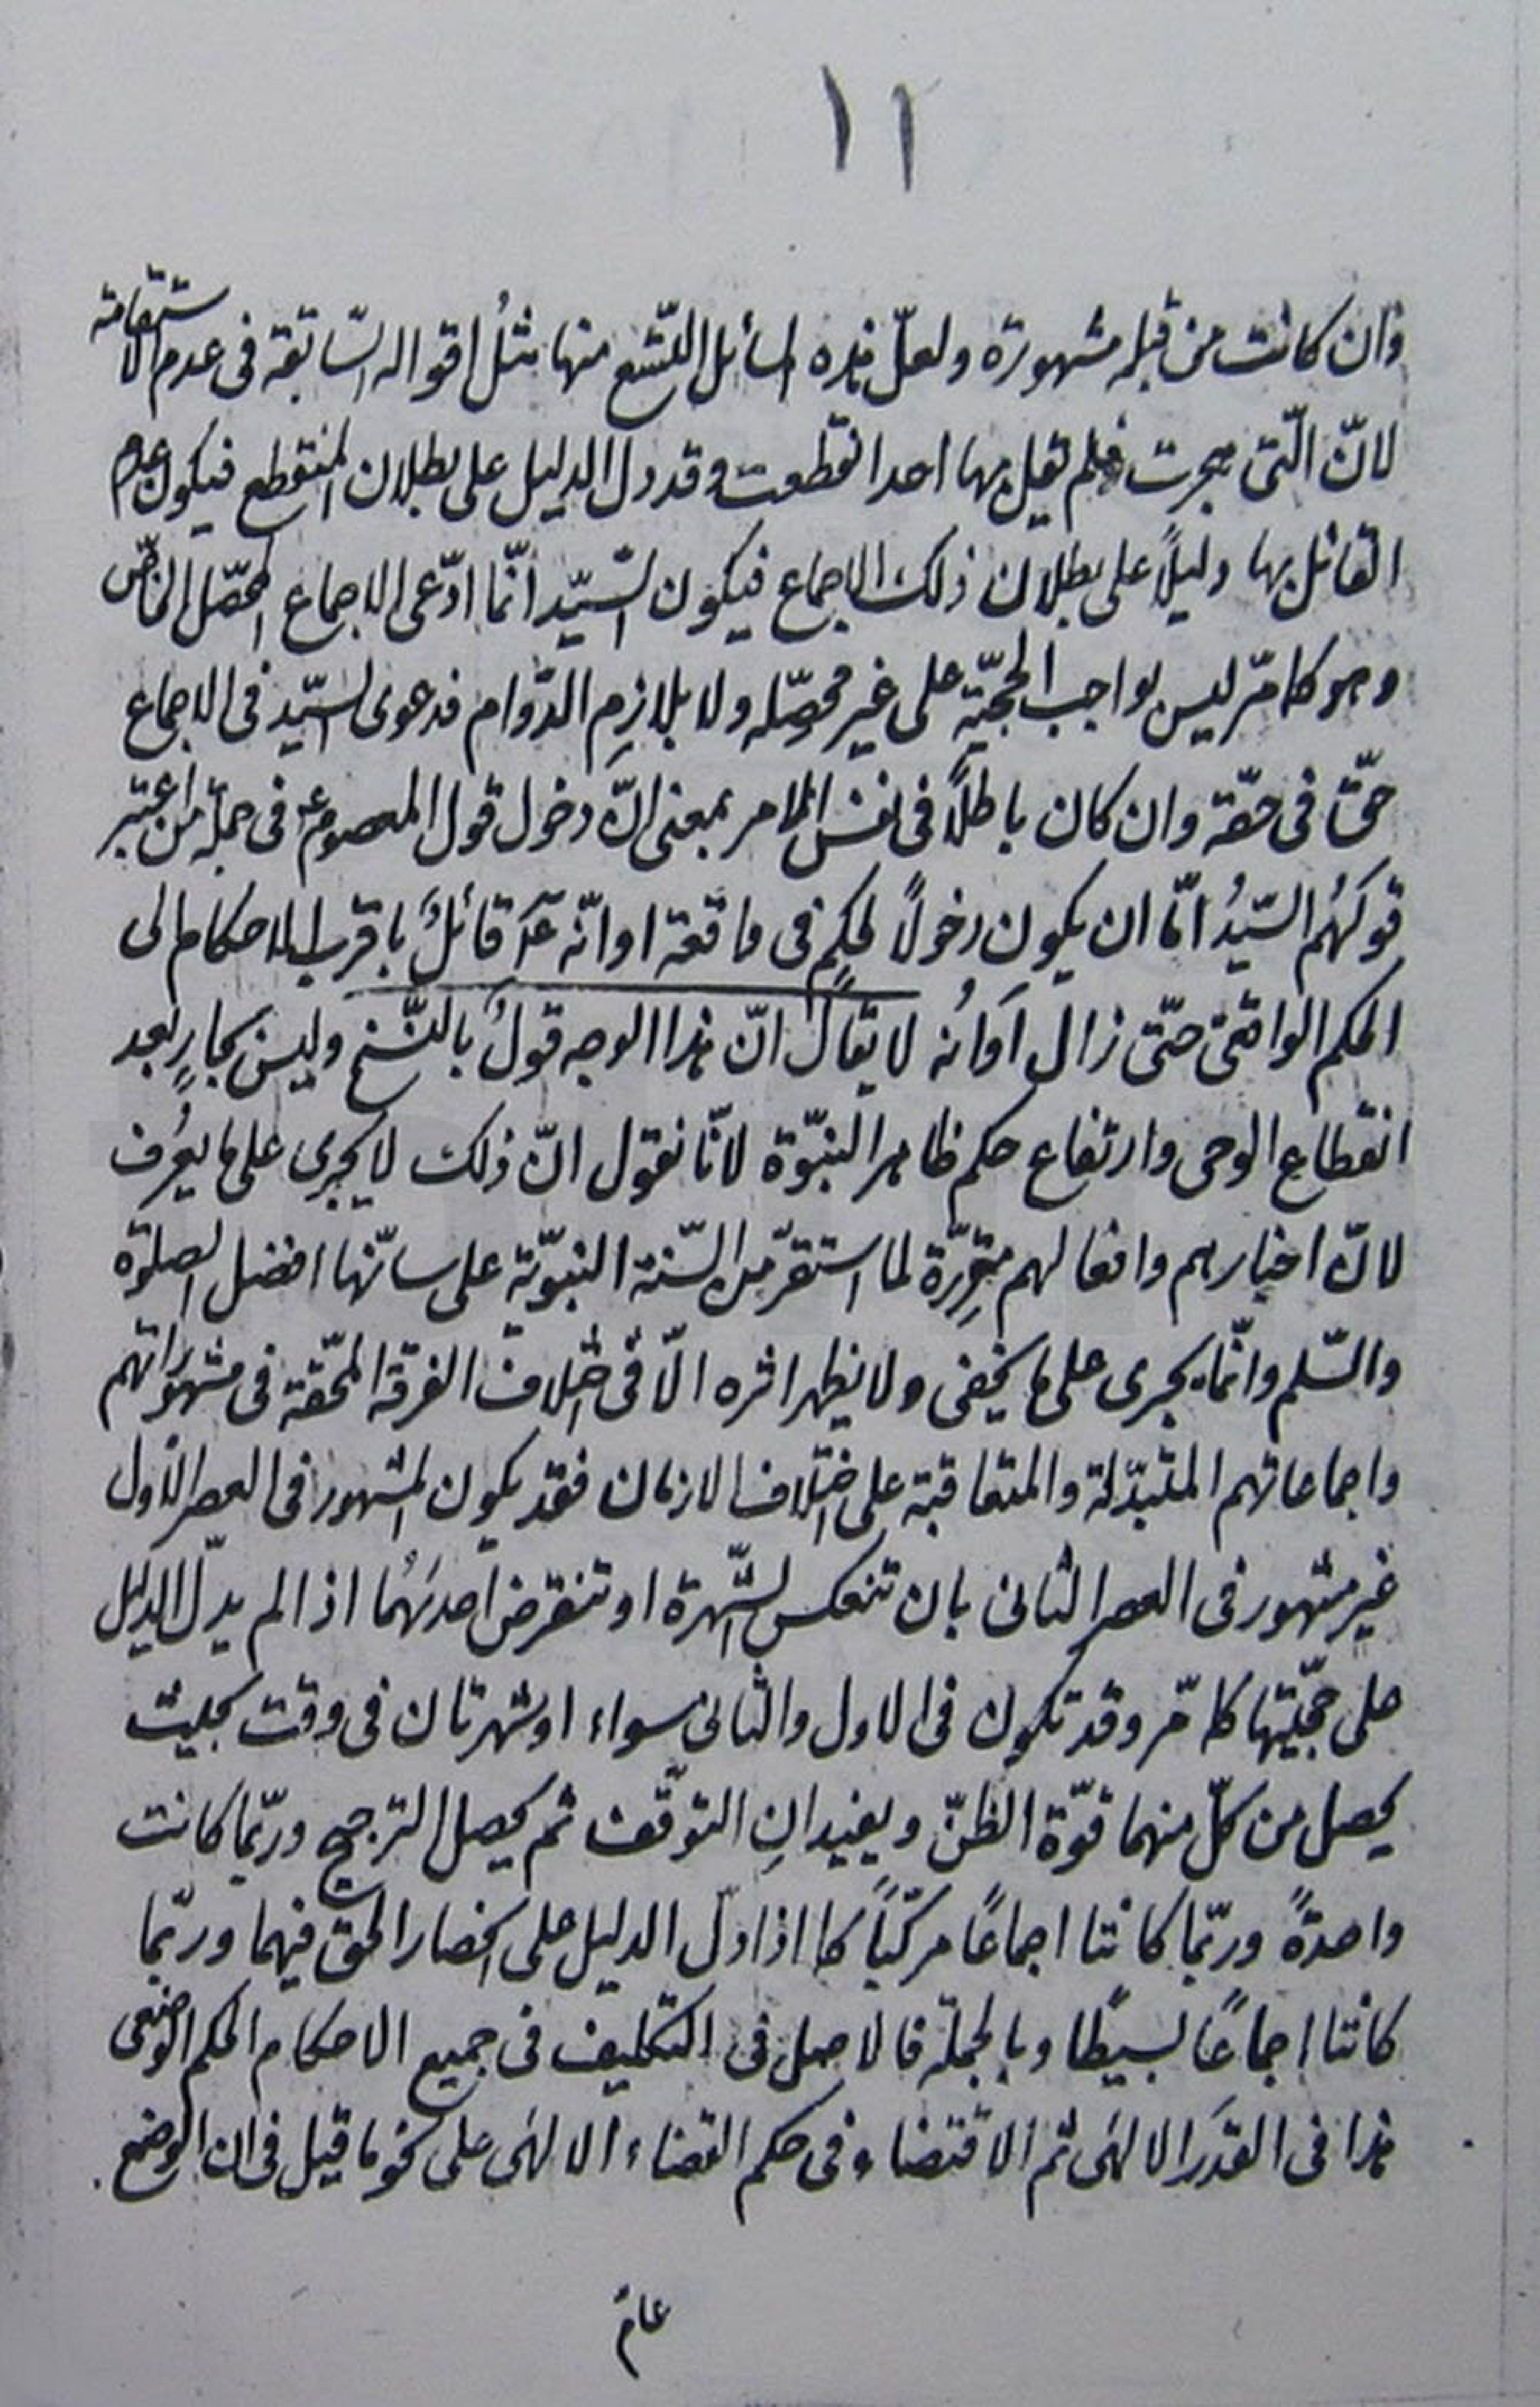 ١١
وان كانت من قبله مشهورة ولعلّ هذه المسائل التسّع منها مثلُ اقواله السّابقة فى عدم الاستقامة
لانّ الّتى هجرت فلم يقل بها احد انقطعت وقد دل الدليل على بطلان المنقطع فيكون عدم
القائل بها دليلاً على بطلان ذلك الاجماع فيكون السّيّد انّما ادّعى الاجماع المحصّل الخاصّ
وهو كما مرّ ليس بواجب الحجّيّة على غير محصّله ولا بلازِم الدّوام فدعوى السّيّد فى الاجماع
حقّ فى حقّه وان كان باطلاً فى نفس الامر بمعنى انّ دخول قول المعصوم ع فى جملة من اعتبر
قولَهُم السّيّدُ امّا ان يكون دخولاً لحكمٍ فى واقعة او انّه ع قائلٌ باقرب الاحكام الى
الحكم الواقعى حتّى زال اَوانُه لا يقال انّ هذا الوجه قولٌ بالنّسخ وليس بجارٍ بعد
انقطاع الوحى وارتفاع حكم ظاهر النبّوة لانّا نقول انّ ذلك لا يجرى على ما يعرف
لانّ اخبارهم وافعالهم مقرِّرة لما استقرّ من السّنة النبويّة على سانّها افضل الصلوة
والسّلم وانّما يجرى على ما يخفى ولا يظهر اثره الّا فى اختلاف الفرقة المحقّة فى مشهوراتهم
واجماعاتهم المتبدّلة والمتعاقبة على اختلاف الازمان فقد يكون المشهور فى العصر الاول
غير مشهور فى العصر الثانى بان تنعكس الشّهرة او تنقرض احدىهُما اذا لم يدلّ الدليل
على حجّيّتها كما مرّ وقد تكون فى الاول والثانى سواء او شهرتان فى وقت بحيث
يحصل من كلّ منهما قوّة الظنّ ويفيدانِ التوقّف ثم يحصل الترجيح وربّما كانت
واحدةً وربّما كانتا اجماعًا مركّبًا كما اذا دلّ الدليل على انحصار الحق فيهما وربّما
كانتا اجماعًا بسيطًا وبالجملة فالاصل فى التكليف فى جميع الاحكام الحكم الوضعى
هذا فى القدَر الالهَى ثم الاقتضاء وفى حكم القضاء الالهَى على نحو ما قيل فى ان الوضع
عامّ